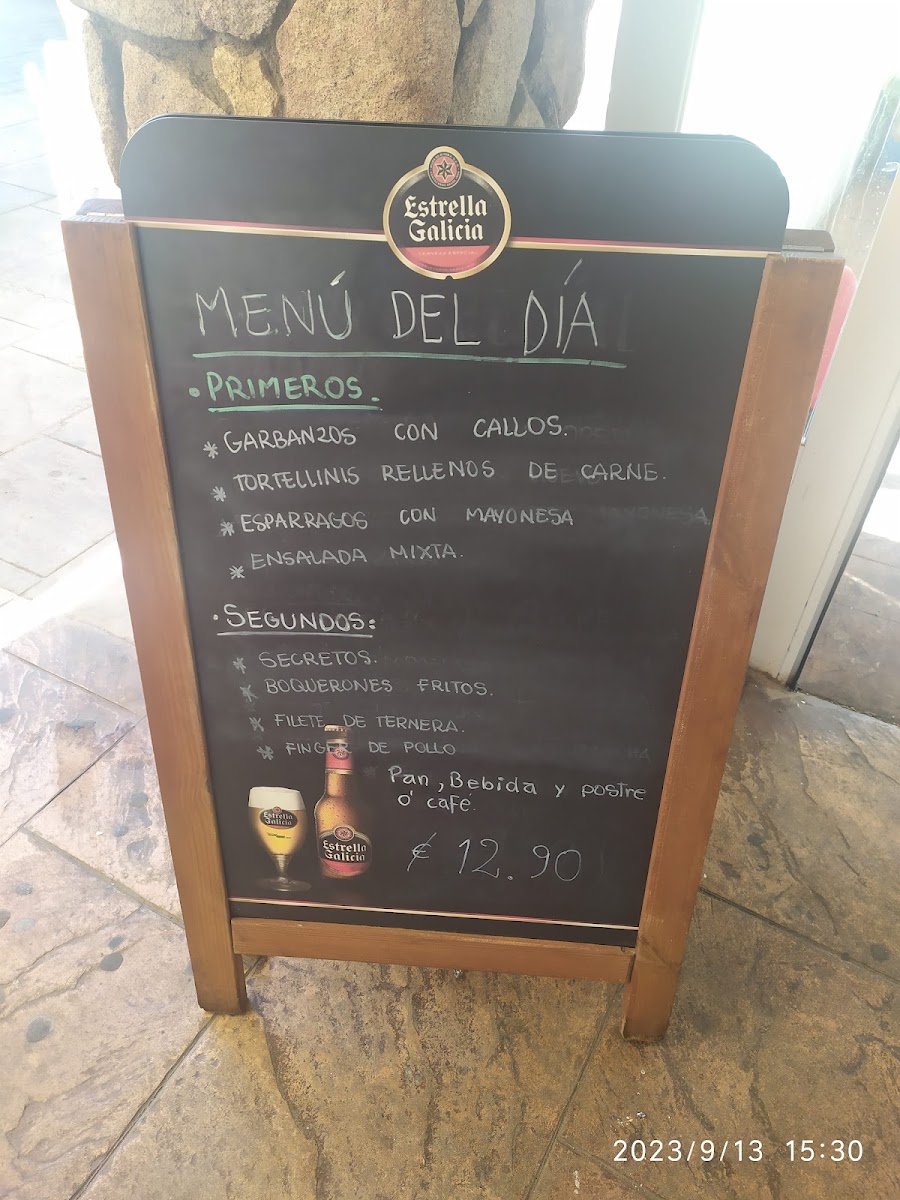 Estrella
Galicia
MENÚ DEL DÍA
• PRIMEROS.
* GARBANZOS CON CALLOS.
* TORTELLINIS RELLENOS DE CARNE.
* ESPARRAGOS CON MAYONESA
* ENSALADA MIXTA.
• SEGUNDOS:
* SECRETOS.
* BOQUERONES FRITOS.
* FILETE DE TERNERA.
* FINGER DE POLLO
Pan, Bebida y postre
o' café.
€ 12.90
Estrella
Galicia
Estrella
Galicia
2023/9/13 15:30